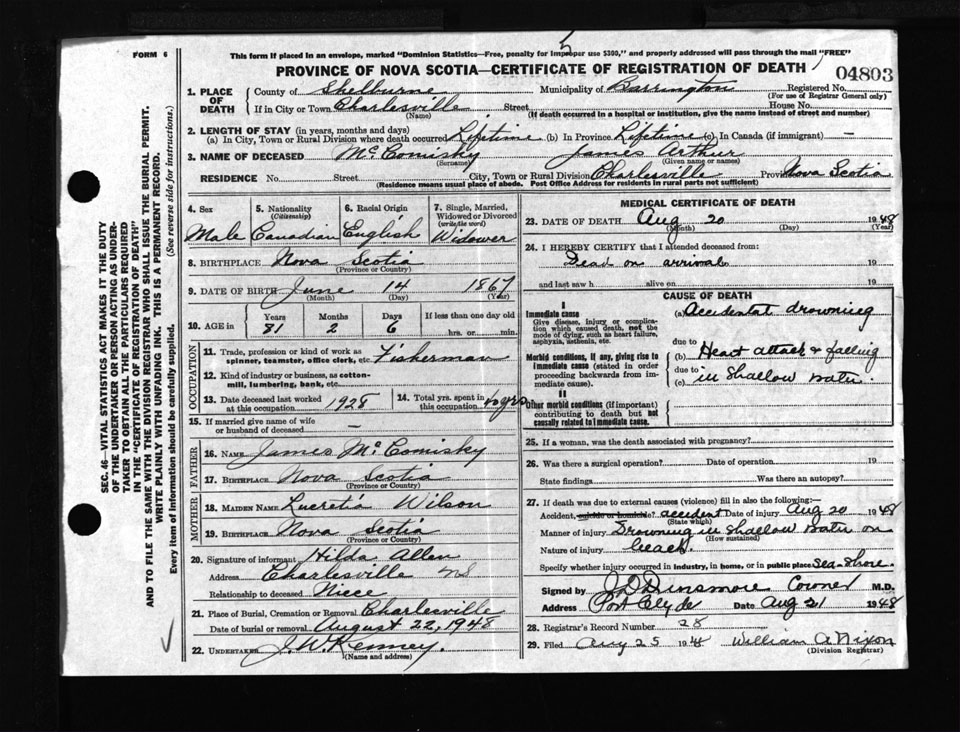 FORM 6
This form if placed in an envelope, marked "Dominion Statistics—Free, penalty for improper use $300," and properly addressed will pass through the mail "FREE"
5
PROVINCE OF NOVA SCOTIA—CERTIFICATE OF REGISTRATION OF DEATH
04803
1. PLACE OF DEATH
County of Shelburne Municipality of Barrington Registered No.
(For use of Registrar General only)
If in City or Town Charlesville Street House No.
(Name) (If death occurred in a hospital or institution, give the name instead of street and number)
2. LENGTH OF STAY (in years, months and days)
(a) In City, Town or Rural Division where death occurred Lifetime (b) In Province Lifetime (c) In Canada (if immigrant) —
3. NAME OF DECEASED McComisky James Arthur
(Surname) (Given name or names)
RESIDENCE No. Street City, Town or Rural Division Charlesville Province Nova Scotia
(Residence means usual place of abode. Post Office Address for residents in rural parts not sufficient)
4. Sex Male
5. Nationality (Citizenship) Canadian
6. Racial Origin English
7. Single, Married, Widowed or Divorced (write the word) Widower
8. BIRTHPLACE Nova Scotia
(Province or Country)
9. DATE OF BIRTH June 14 1867
(Month) (Day) (Year)
10. AGE in Years Months Days If less than one day old
81 2 6 hrs. or min.
OCCUPATION
11. Trade, profession or kind of work as spinner, teamster, office clerk, etc. Fisherman
12. Kind of industry or business, as cotton-mill, lumbering, bank, etc.
13. Date deceased last worked at this occupation 1928
14. Total yrs. spent in this occupation 40 yrs
15. If married give name of wife or husband of deceased —
FATHER
16. NAME James McComisky
17. BIRTHPLACE Nova Scotia
(Province or Country)
MOTHER
18. MAIDEN NAME Lucretia Wilson
19. BIRTHPLACE Nova Scotia
(Province or Country)
20. Signature of informant Hilda Allen
Address Charlesville NS
Relationship to deceased Niece
21. Place of Burial, Cremation or Removal Charlesville
Date of burial or removal August 22, 1948
22. UNDERTAKER J. W. Kenney.
(Name and address)
MEDICAL CERTIFICATE OF DEATH
23. DATE OF DEATH Aug 20 1948
(Month) (Day) (Year)
24. I HEREBY CERTIFY that I attended deceased from:
Dead on arrival 19
and last saw h alive on 19
CAUSE OF DEATH
I
Immediate cause
Give disease, injury or complication which caused death, not the mode of dying, such as heart failure, asphyxia, asthenia, etc.
(a) Accidental drowning
due to
Morbid conditions, if any, giving rise to immediate cause (stated in order proceeding backwards from immediate cause).
(b) Heart attack & falling
due to
(c) in shallow water.
II
Other morbid conditions (if important) contributing to death but not causally related to immediate cause.
25. If a woman, was the death associated with pregnancy?
26. Was there a surgical operation? Date of operation 19
State findings Was there an autopsy?
27. If death was due to external causes (violence) fill in also the following:
Accident, suicide or homicide? accident Date of injury Aug 20 1948
(State which)
Manner of injury Drowning in shallow water on
(How sustained)
Nature of injury beach.
Specify whether injury occurred in industry, in home, or in public place sea-shore.
Signed by J D Dinsmore Coroner M.D.
Address Port Clyde Date Aug 21 1948
28. Registrar's Record Number 28
29. Filed Aug 25 194 William A Nixon
(Division Registrar)
SEC. 46—VITAL STATISTICS ACT MAKES IT THE DUTY
OF THE UNDERTAKER OR PERSON ACTING AS UNDER-
TAKER TO OBTAIN ALL THE PARTICULARS REQUIRED
IN THE "CERTIFICATE OF REGISTRATION OF DEATH"
AND TO FILE THE SAME WITH THE DIVISION REGISTRAR WHO SHALL ISSUE THE BURIAL PERMIT.
WRITE PLAINLY WITH UNFADING INK. THIS IS A PERMANENT RECORD.
Every item of information should be carefully supplied. (See reverse side for instructions.)